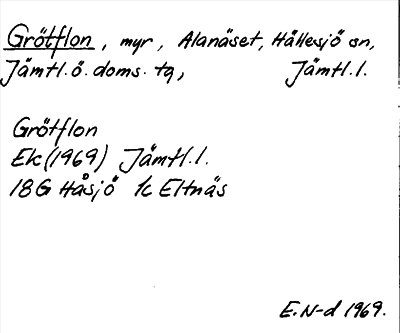 Grötflon, myr, Alanäset, Hällesjö sn,
Jämtl. ö. doms. tg, Jämtl. l.
Grötflon
Ek (1969) Jämtl. l.
18G Håsjö 1c Eltnäs
E. N-d 1969.